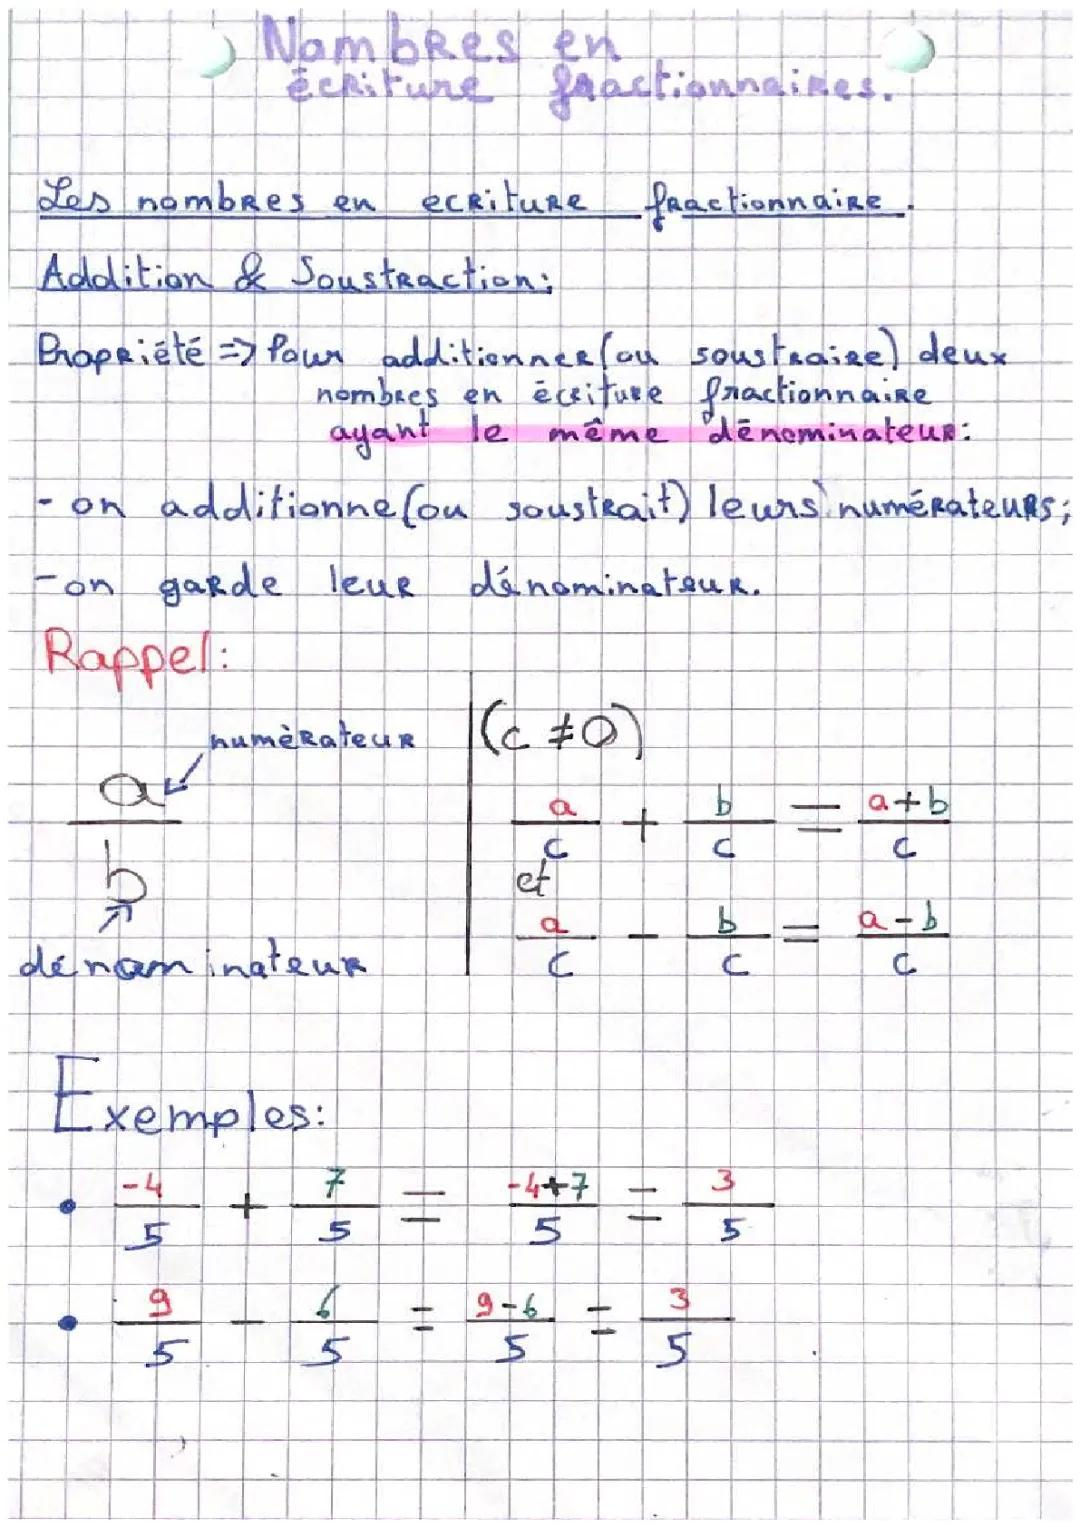 Nombres en
écriture fractionnaires.
Les nombres en ecriture fractionnaire.
Addition & Soustraction:
Propriété => Pour additionner (ou soustraire) deux
nombres en écriture fractionnaire
ayant le même dénominateur:
- on additionne (ou soustrait) leurs numérateurs;
- on garde leur dénominateur.
Rappel:
numèrateur
a/b
dénominateur
(c ≠ 0)
a/c + b/c = a+b/c
et
a/c - b/c = a-b/c
Exemples:
• -4/5 + 7/5 = -4+7/5 = 3/5
• 9/5 - 6/5 = 9-6/5 = 3/5